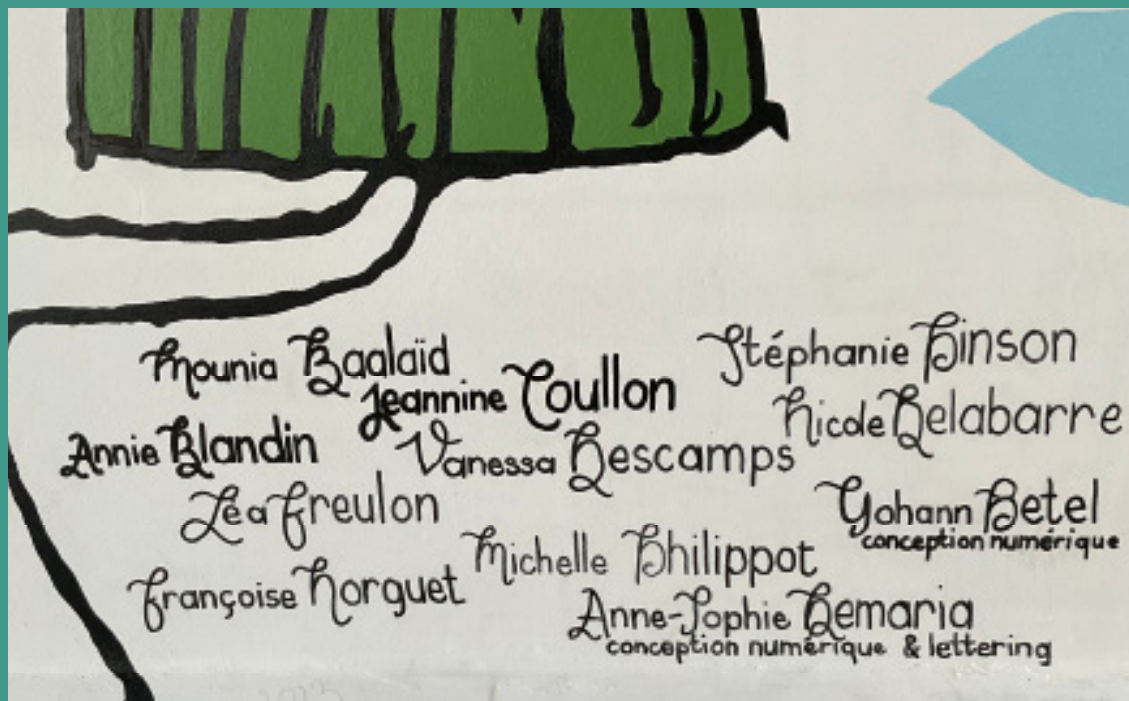 Mounia Baalaïd
Stéphanie Pinson
Jeannine Coullon
Nicole Delabarre
Annie Blandin
Vanessa Descamps
Léa Freulon
Yohann Petel
conception numérique
Michelle Philippot
Françoise Norguet
Anne-Sophie Demaria
conception numérique & lettering